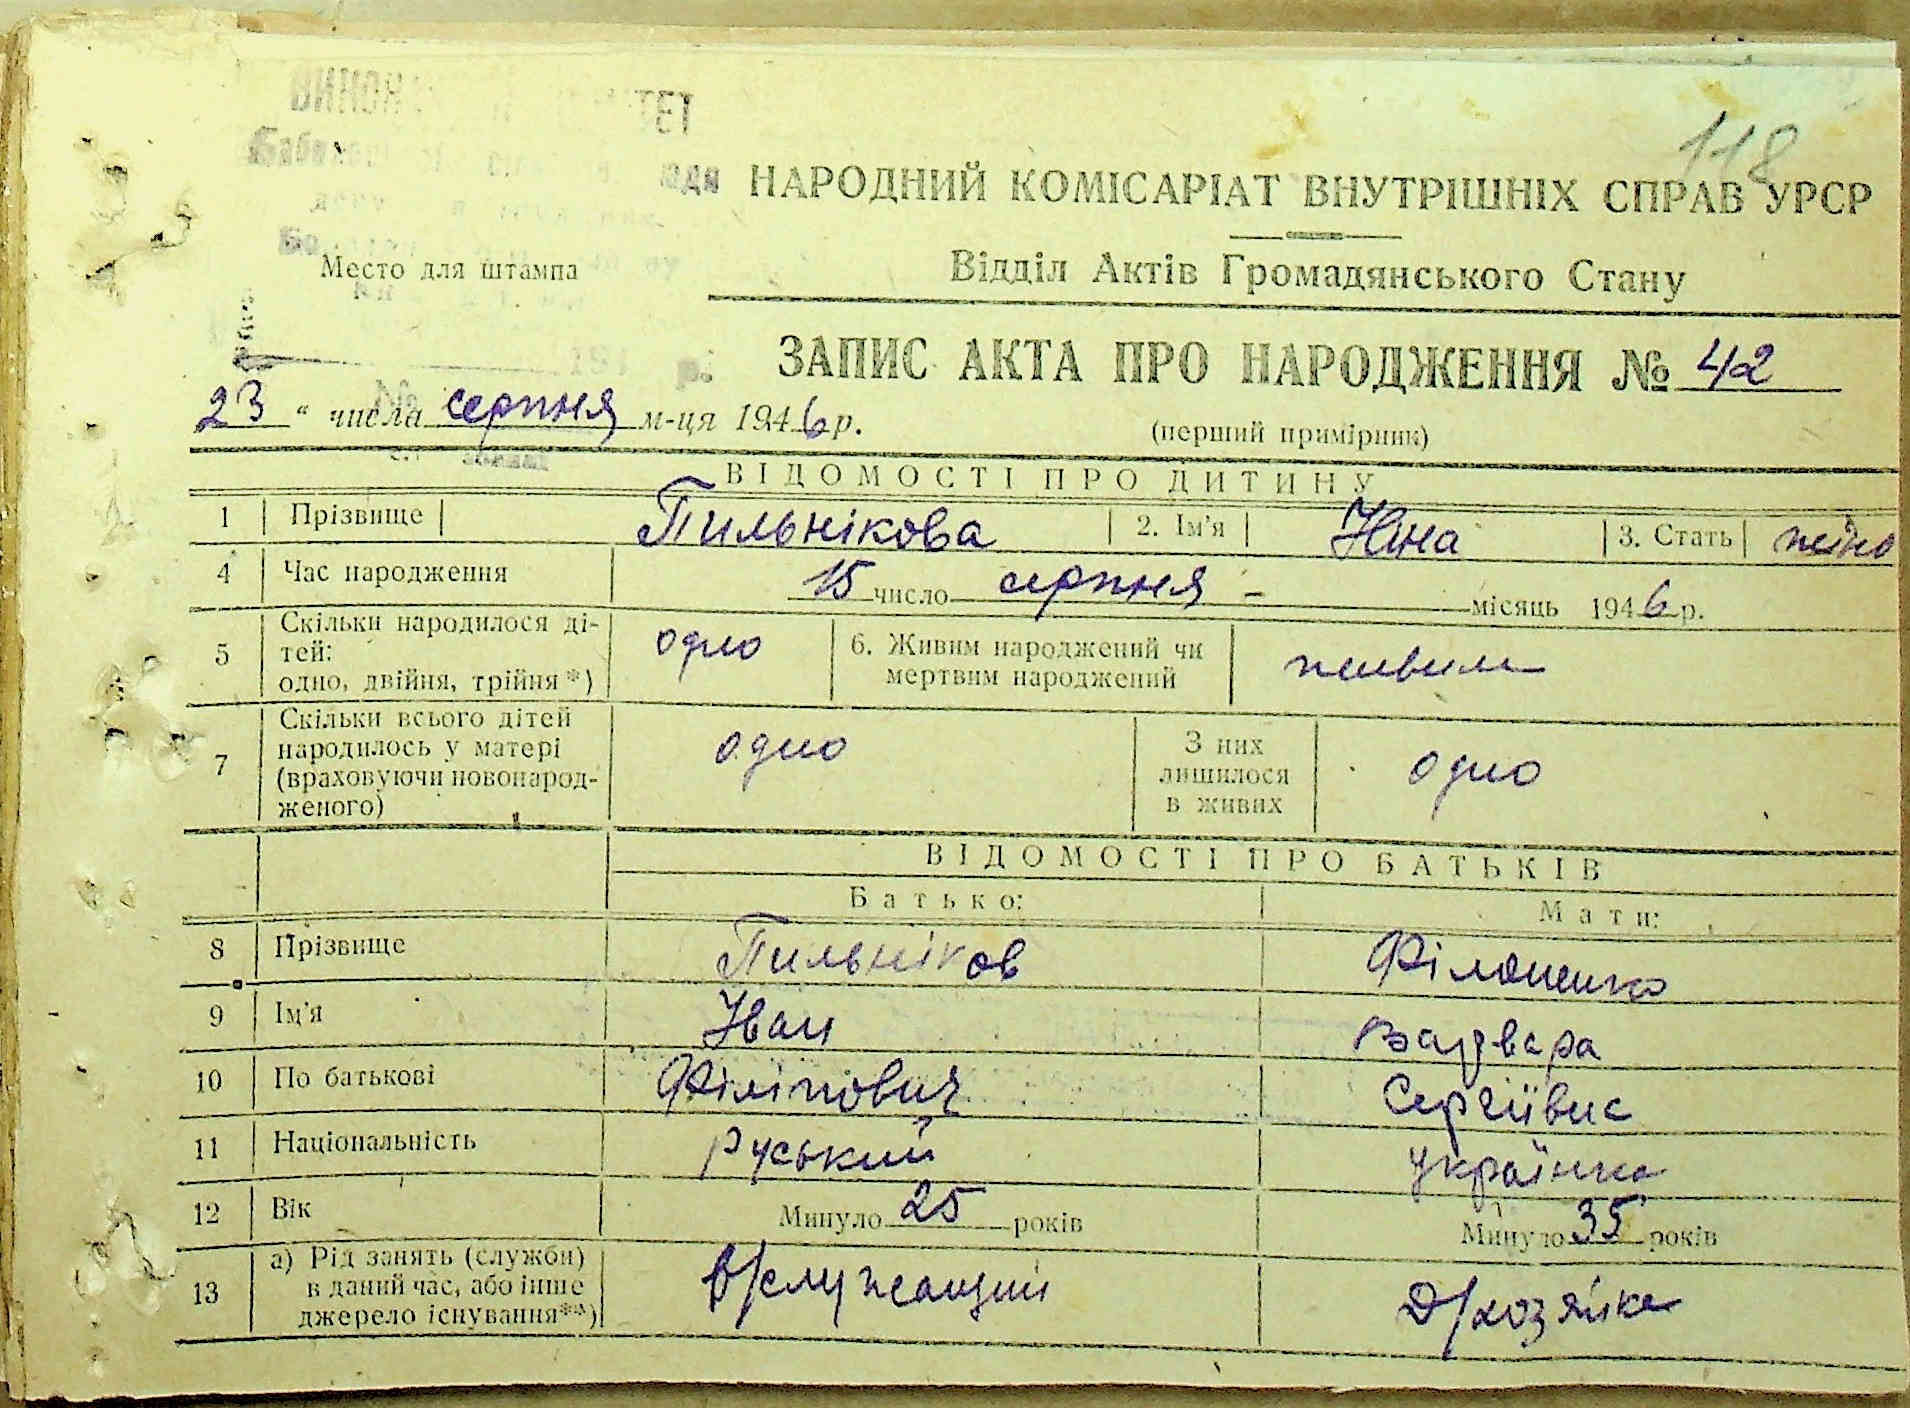 118
НАРОДНИЙ КОМІСАРІАТ ВНУТРІШНІХ СПРАВ УРСР
Відділ Актів Громадянського Стану
Место для штампа
ЗАПИС АКТА ПРО НАРОДЖЕННЯ № 42
23 " числа серпня м-ця 1946 р.
(перший примірник)
ВІДОМОСТІ ПРО ДИТИНУ
1 Прізвище Пильнікова 2. Ім'я Ніна 3. Стать
4 Час народження 15 число серпня - місяць 1946 р.
5 Скільки народилося ді-
тей:
одно, двійня, трійня*) одно 6. Живим народжений чи
мертвим народжений живим
7 Скільки всього дітей
народилось у матері
(враховуючи новонарод-
женого) одно З них
лишилося
в живих одно
ВІДОМОСТІ ПРО БАТЬКІВ
Батько: Мати:
8 Прізвище Пильніков Філоненко
9 Ім'я Іван Варвара
10 По батькові Філіпович Сергіївна
11 Національність руський українка
12 Вік Минуло 25 років Минуло 35 років
13 а) Рід занять (служби)
в даний час, або інше
джерело існування**) в/служащий д/хозяйка